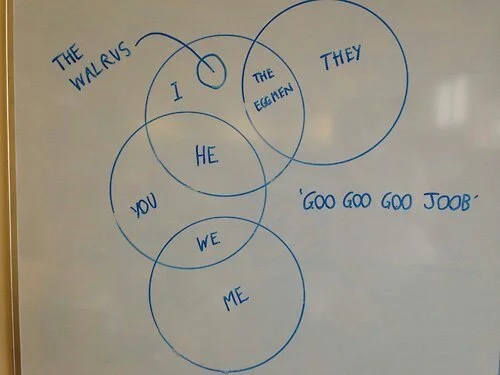 THE
WALRUS
I
THE
EGGMEN
THEY
HE
YOU
'GOO GOO GOO JOOB'
WE
ME